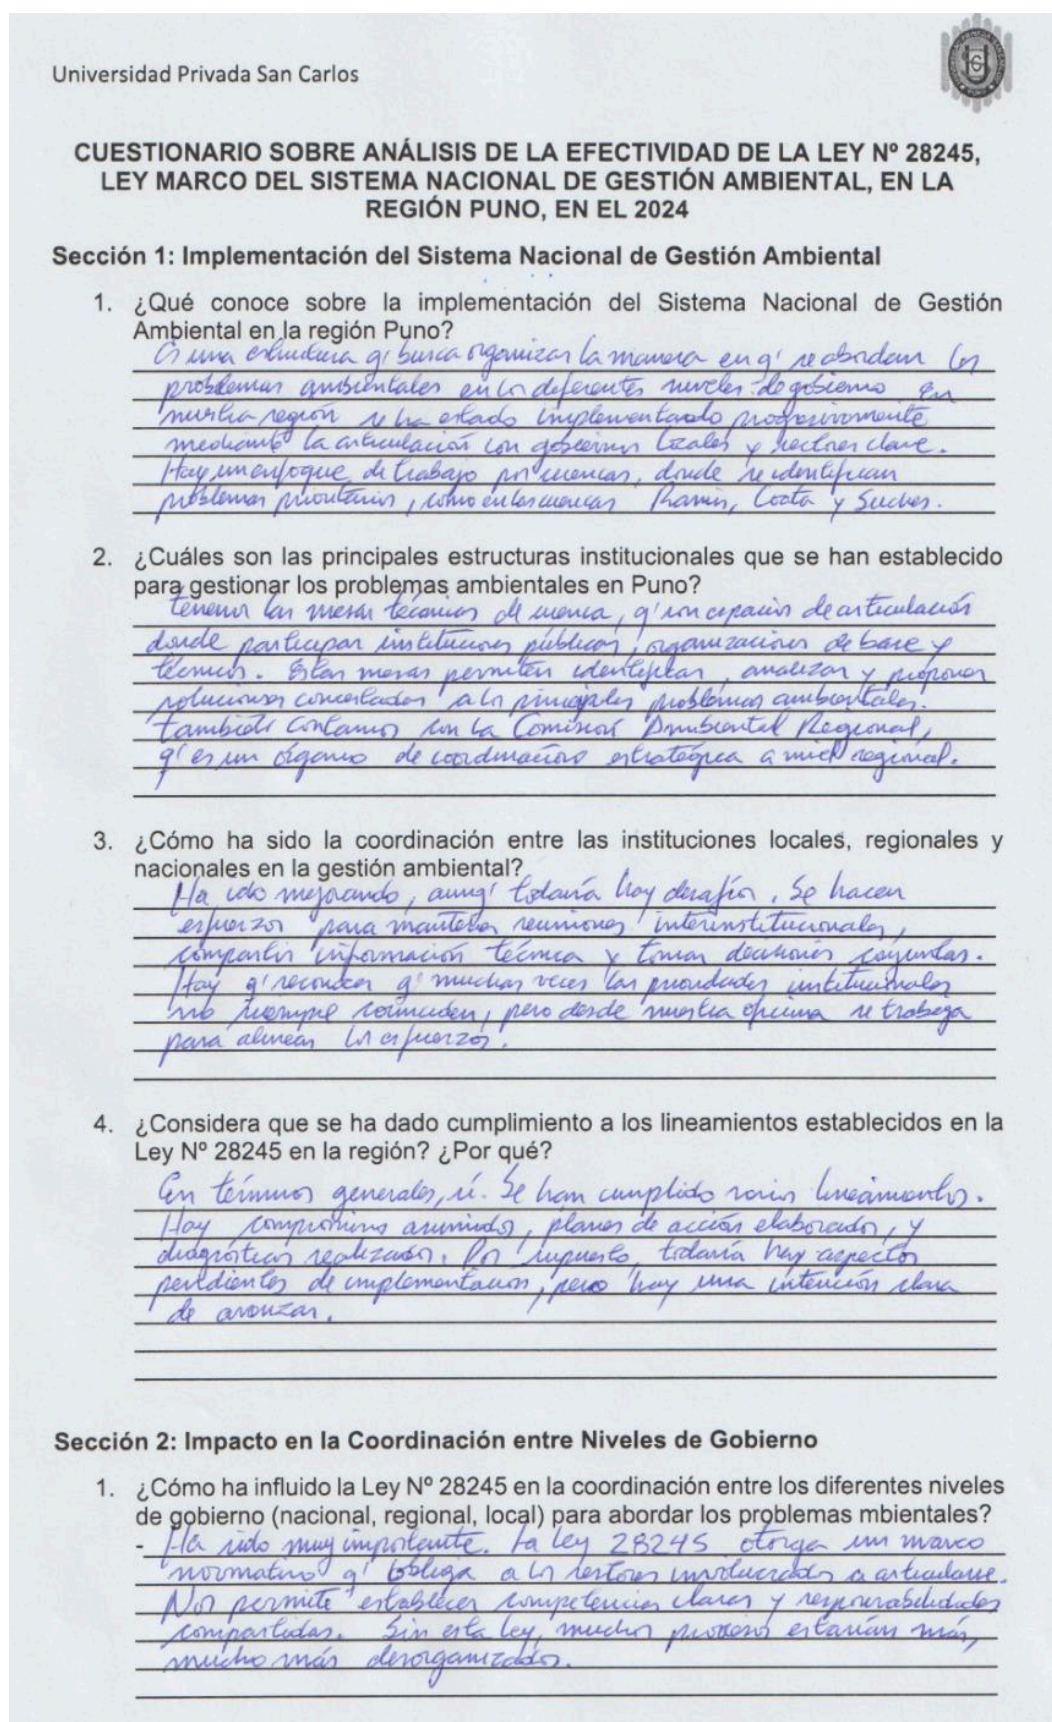 Universidad Privada San Carlos
CUESTIONARIO SOBRE ANÁLISIS DE LA EFECTIVIDAD DE LA LEY Nº 28245,
LEY MARCO DEL SISTEMA NACIONAL DE GESTIÓN AMBIENTAL, EN LA
REGIÓN PUNO, EN EL 2024
Sección 1: Implementación del Sistema Nacional de Gestión Ambiental
1. ¿Qué conoce sobre la implementación del Sistema Nacional de Gestión
Ambiental en la región Puno?
Es una estructura q' busca organizar la manera en q' se abordan los
problemas ambientales en los diferentes niveles de gobierno en
nuestra región se ha estado implementando progresivamente
mediante la articulación con gobiernos locales y sectores clave.
Hay un enfoque de trabajo por cuencas, donde se identifican
problemas prioritarios, como en las cuencas Ramis, Coata y Suches.
2. ¿Cuáles son las principales estructuras institucionales que se han establecido
para gestionar los problemas ambientales en Puno?
tenemos las mesas técnicas de cuenca, q' son espacios de articulación
donde participan instituciones públicas, organizaciones de base y
técnicos. Estas mesas permiten identificar, analizar y proponer
soluciones concertadas a los principales problemas ambientales.
también contamos con la Comisión Ambiental Regional,
q' es un órgano de coordinación estratégica a nivel regional.
3. ¿Cómo ha sido la coordinación entre las instituciones locales, regionales y
nacionales en la gestión ambiental?
Ha ido mejorando, aunq' todavía hay desafíos. Se hacen
esfuerzos para mantener reuniones interinstitucionales,
compartir información técnica y tomar decisiones conjuntas.
Hay q' reconocer q' muchas veces las prioridades institucionales
no siempre coinciden, pero desde nuestra oficina se trabaja
para alinear los esfuerzos.
4. ¿Considera que se ha dado cumplimiento a los lineamientos establecidos en la
Ley Nº 28245 en la región? ¿Por qué?
En términos generales, sí. Se han cumplido varios lineamientos.
Hay compromisos asumidos, planes de acción elaborados, y
diagnósticos realizados. Por supuesto, todavía hay aspectos
pendientes de implementación, pero hay una intención clara
de avanzar.
Sección 2: Impacto en la Coordinación entre Niveles de Gobierno
1. ¿Cómo ha influido la Ley Nº 28245 en la coordinación entre los diferentes niveles
de gobierno (nacional, regional, local) para abordar los problemas mbientales?
- Ha sido muy importante. La ley 28245 otorga un marco
normativo q' obliga a los sectores involucrados a articularse.
Nos permite establecer competencias claras y responsabilidades
compartidas. Sin esta ley, muchos procesos estarían más,
mucho más desorganizados.